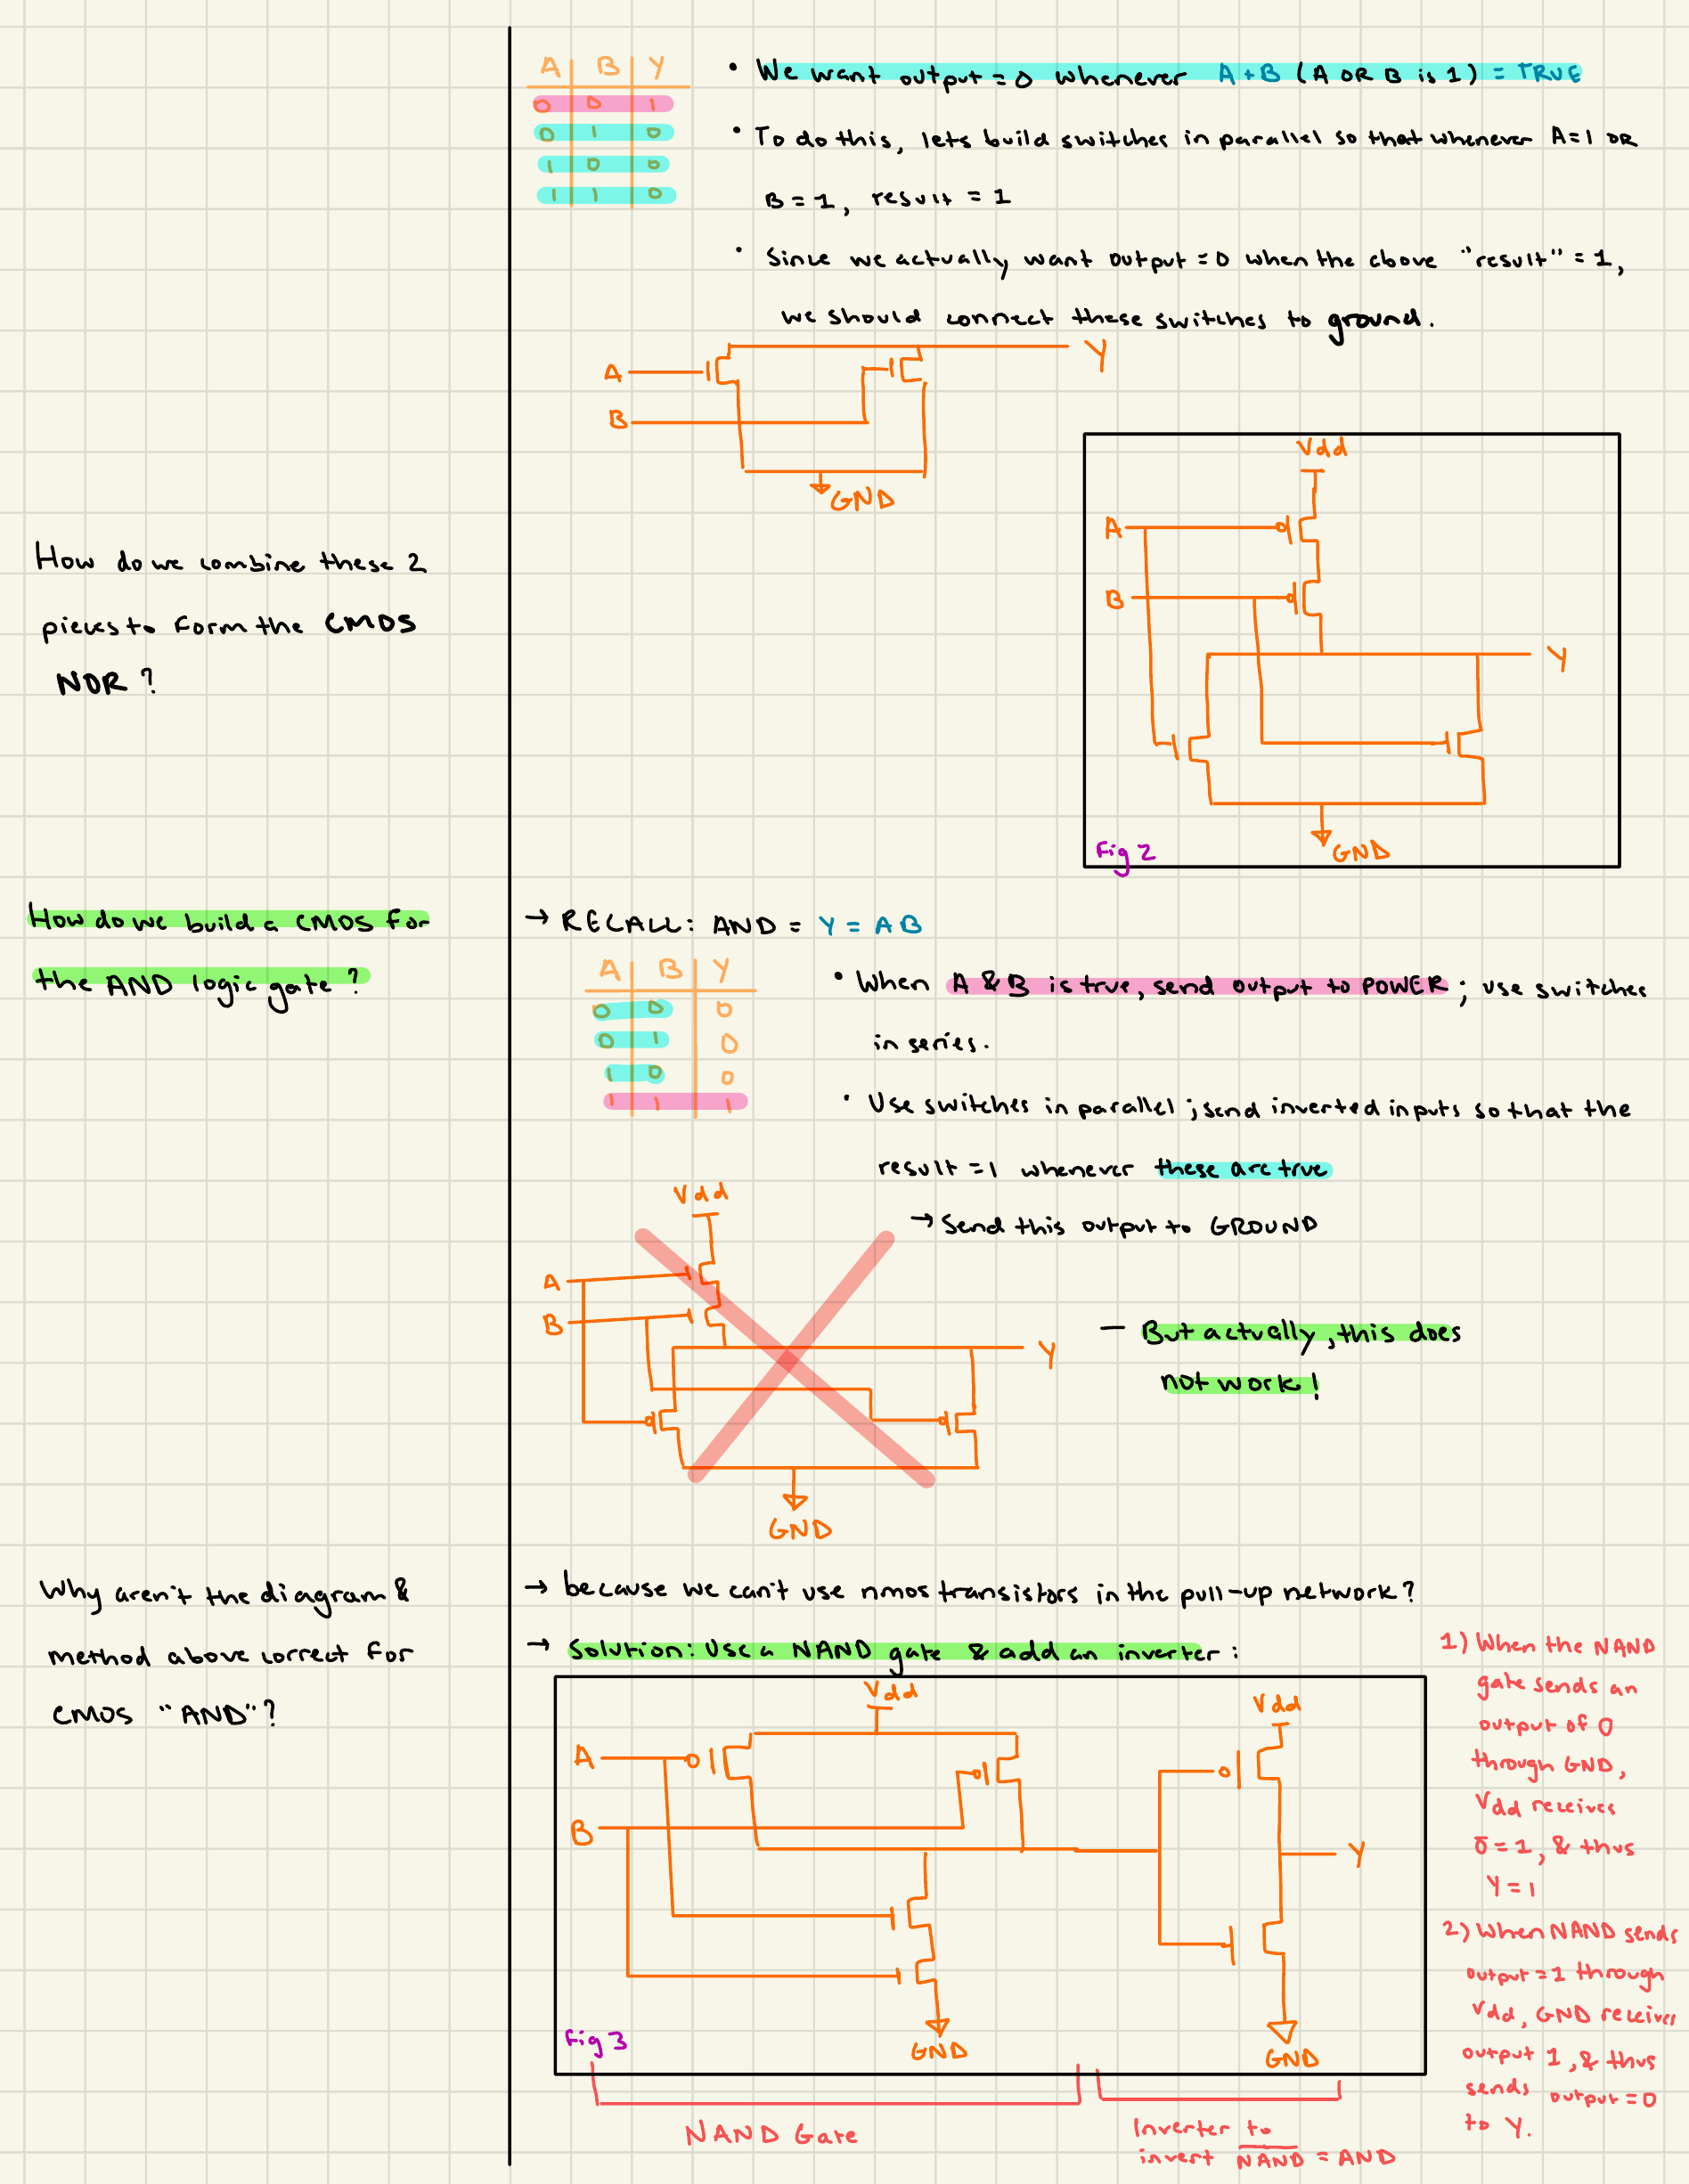 A B Y
0 0 1
0 1 0
1 0 0
1 1 0
• We want output = 0 whenever A + B (A OR B is 1) = TRUE
• To do this, lets build switches in parallel so that whenever A=1 OR
B = 1, result = 1
• Since we actually want output = 0 when the above "result" = 1,
we should connect these switches to ground.
A
B
Y
GND
How do we combine these 2
pieces to form the CMOS
NOR?
Vdd
A
B
Y
GND
Fig 2
How do we build a CMOS for
the AND logic gate?
→ RECALL: AND = Y = AB
A B Y
0 0 0
0 1 0
1 0 0
1 1 1
• When A & B is true, send output to POWER; use switches
in series.
• Use switches in parallel; send inverted inputs so that the
result = 1 whenever these are true
→ Send this output to GROUND
Vdd
A
B
Y
GND
— But actually, this does
not work!
Why aren't the diagram &
method above correct for
CMOS "AND"?
→ because we can't use nmos transistors in the pull-up network?
→ Solution: Use a NAND gate & add an inverter:
Vdd
Vdd
A
B
Y
GND
GND
Fig 3
NAND Gate
Inverter to
invert N̅A̅N̅D̅ = AND
1) When the NAND
gate sends an
output of 0
through GND,
Vdd receives
0̅ = 1, & thus
Y = 1
2) When NAND sends
output = 1 through
Vdd, GND receives
output 1, & thus
sends output = 0
to Y.